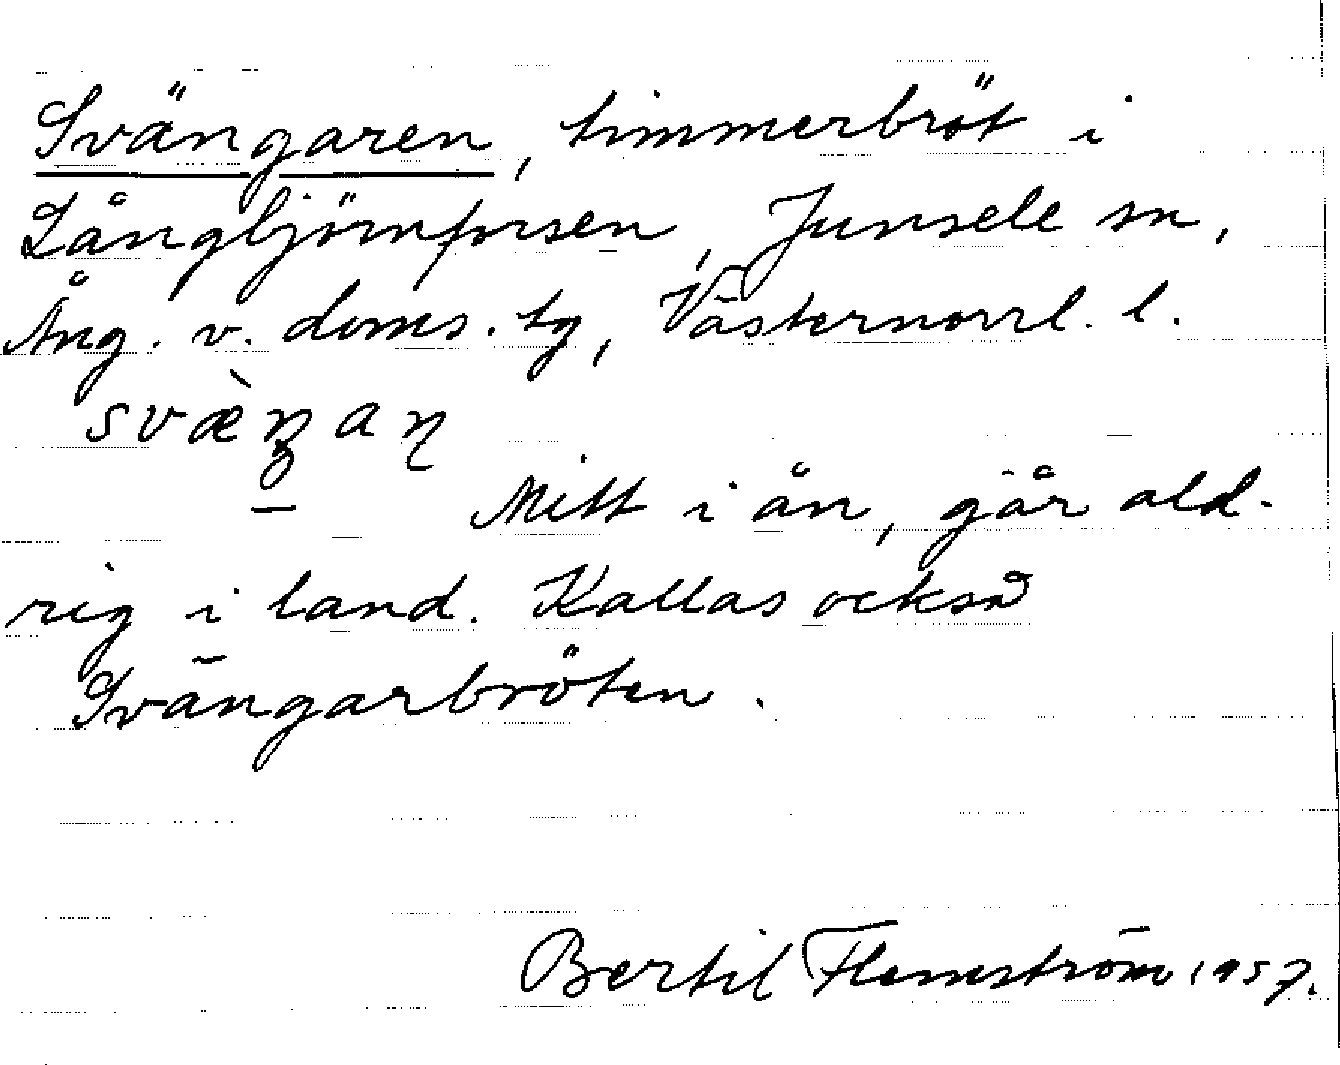 Svängaren, timmerbröt i
Långbjörnforsen, Junsele sn,
Ång. v. doms. tg, Västernorrl. l.
svæ̀ŋan
Mitt i ån, går ald-
rig i land. Kallas också
Svängarbröten.
Bertil Flemström 1957.